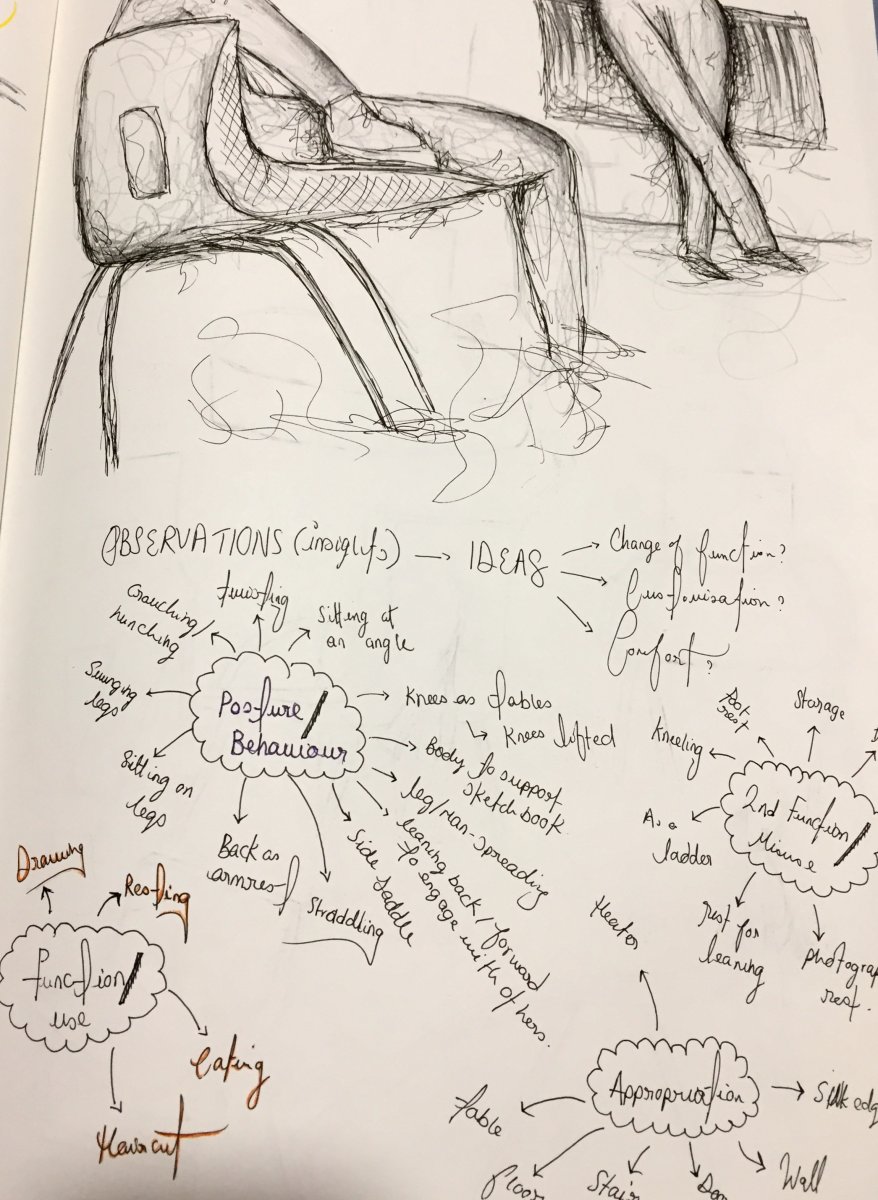 OBSERVATIONS (insights) → IDEAS
Change of function?
Customisation?
Comfort?
Posture /
Behaviour
Crouching/
hunching
twisting
Sitting at
an angle
Swinging
legs
Sitting on
legs
Back as
armrest
Straddling
Side saddle
leaning back / forward
to engage with others.
leg/man-spreading
Body to support
sketchbook
Knees as tables
Knees lifted
2nd Function /
Misuse
Kneeling
Foot
rest
Storage
As a
ladder
rest for
leaning
rest.
Function /
use
Drawing
Resting
Eating
Haircut
Appropriation
Heater
Table
Floor
Wall